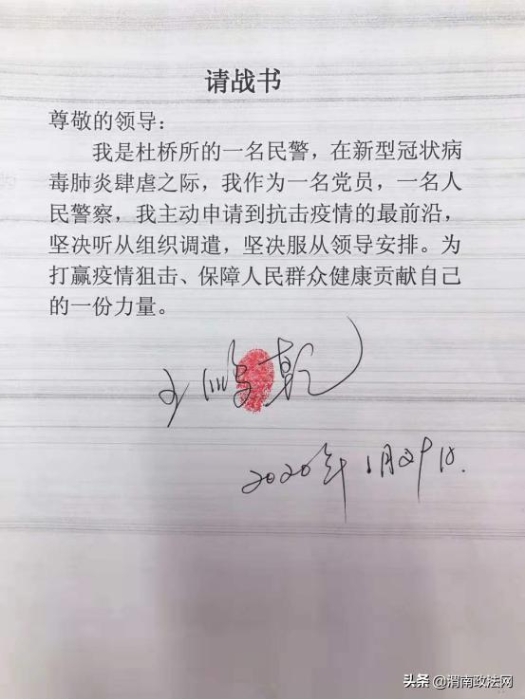 请战书
尊敬的领导：
我是杜桥所的一名民警，在新型冠状病
毒肺炎肆虐之际，我作为一名党员，一名人
民警察，我主动申请到抗击疫情的最前沿，
坚决听从组织调遣，坚决服从领导安排。为
打赢疫情狙击、保障人民群众健康贡献自己
的一份力量。
2020年1月29日.
头条@渭南政法网